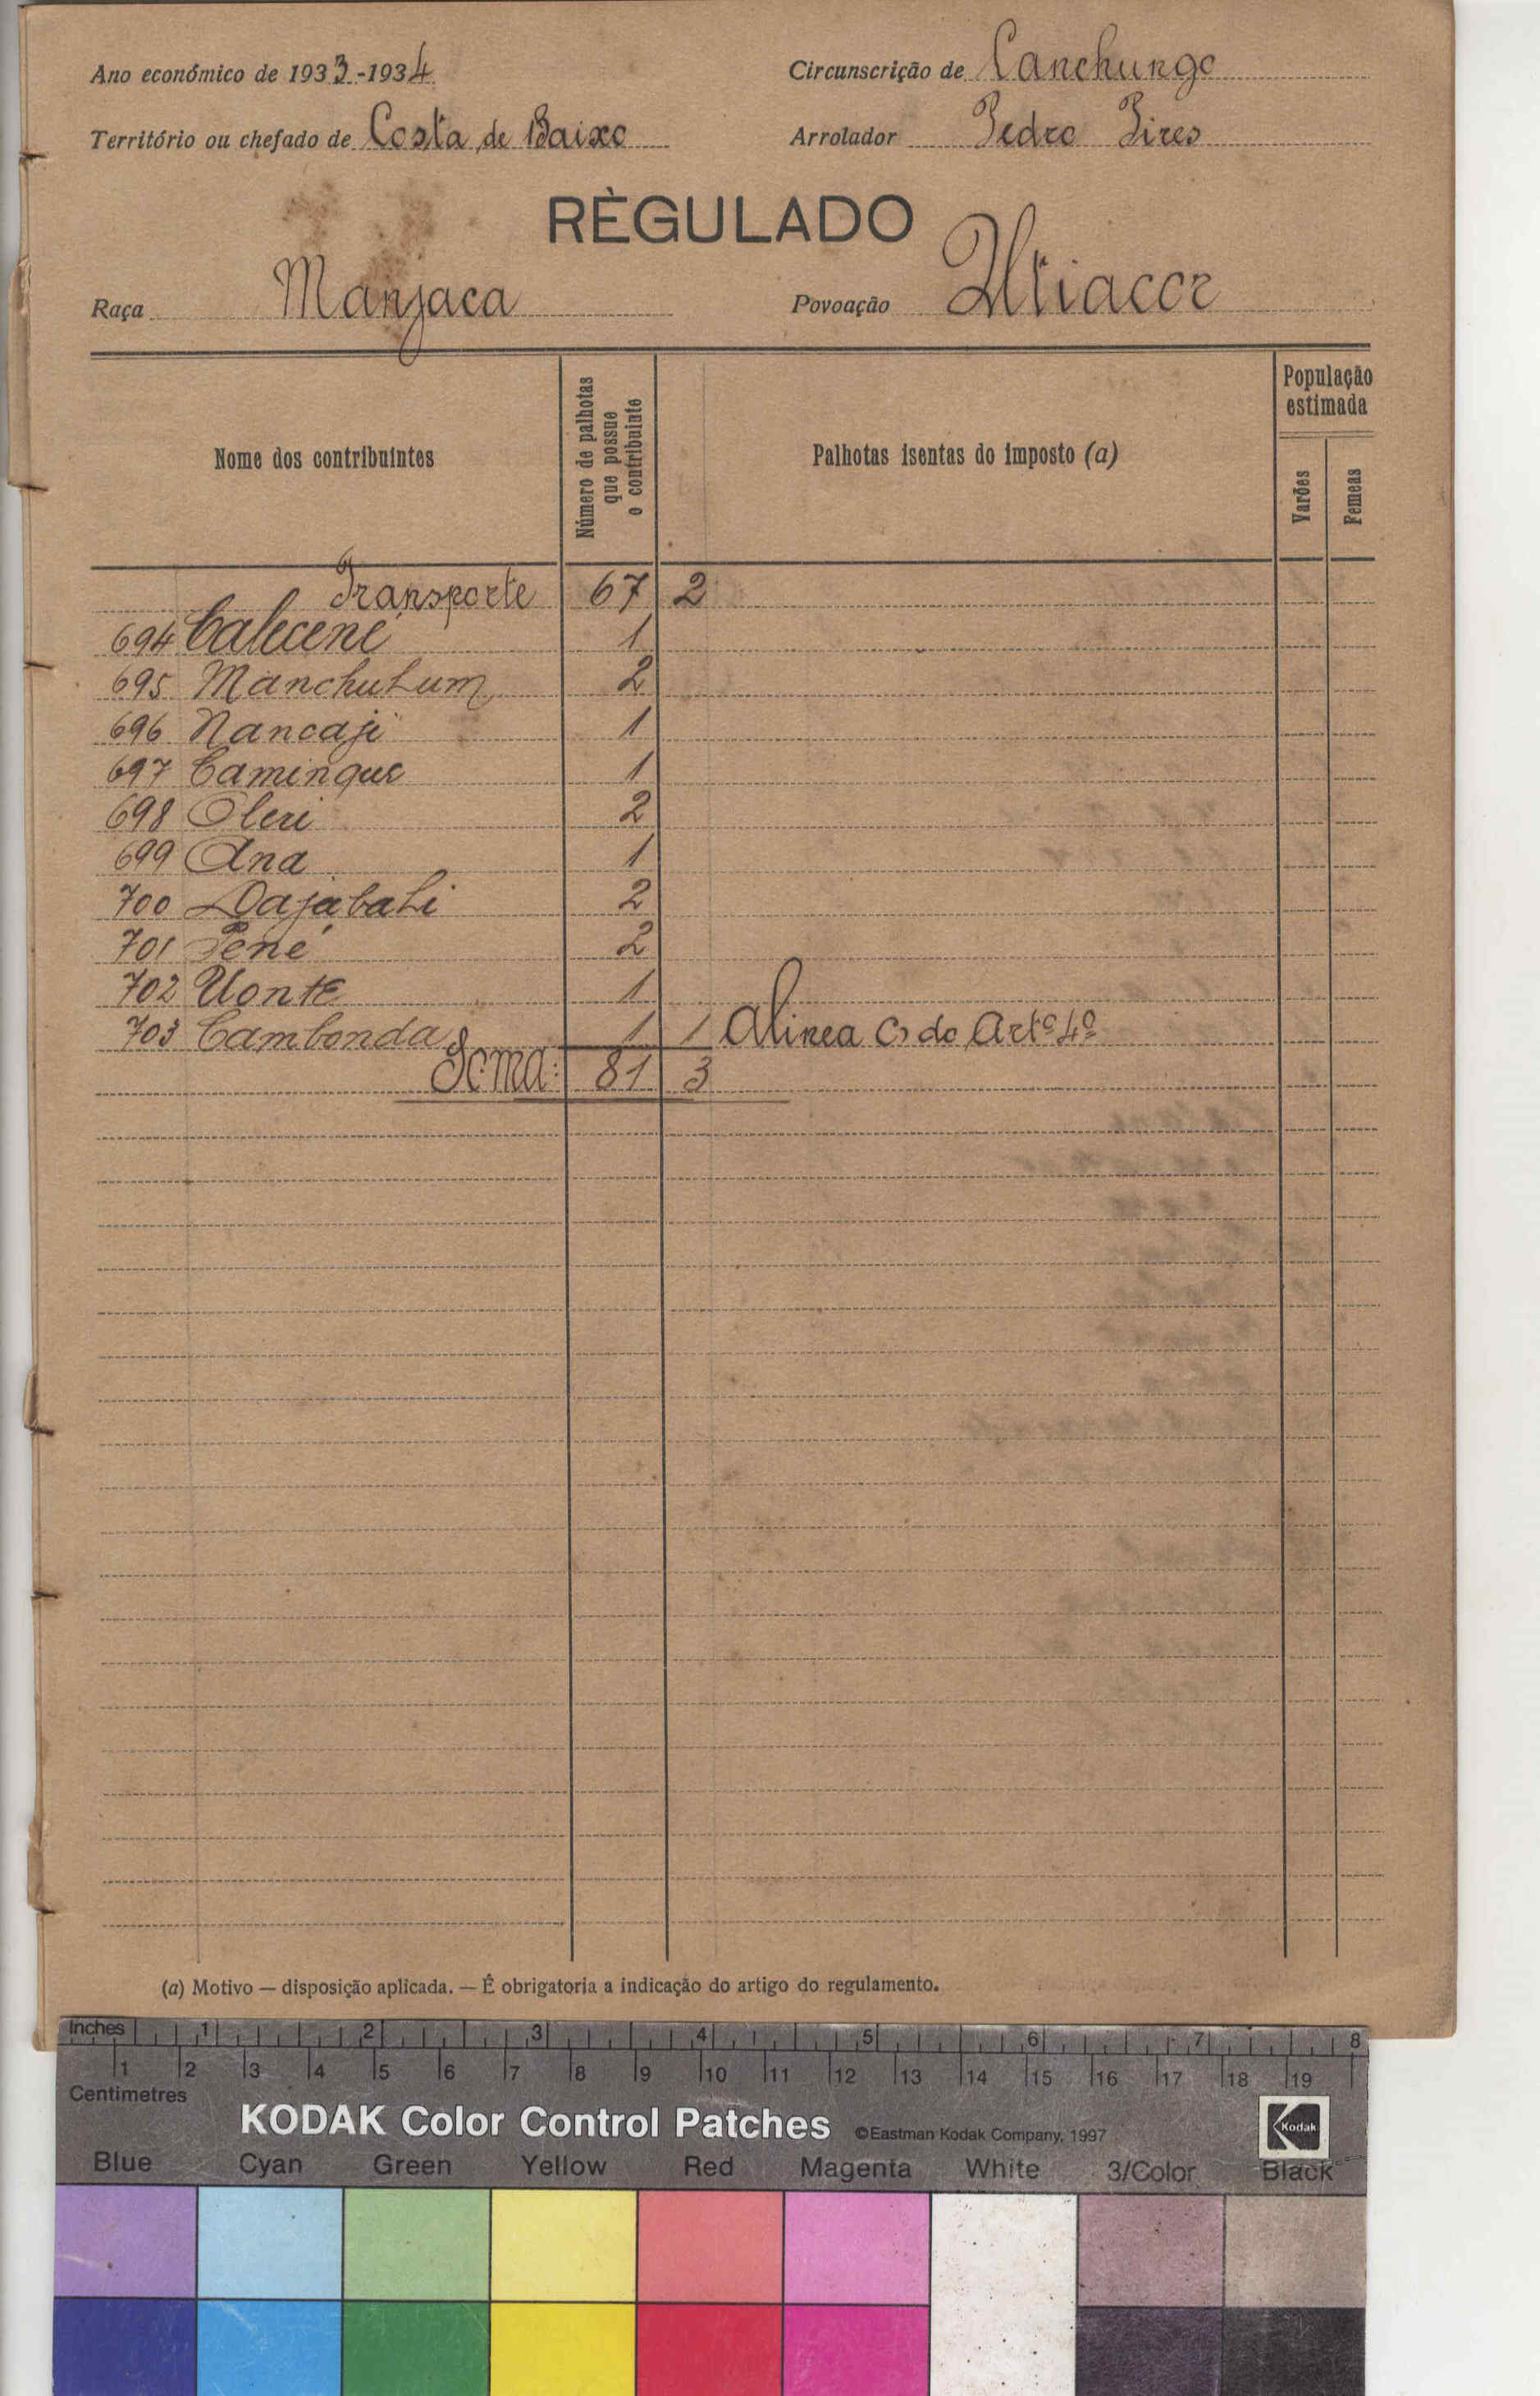 Ano económico de 1933-1934 Circunscrição de Canchungo
Território ou chefado de Costa de Baixo Arrolador Pedro Pires
RÈGULADO
Raça Manjaca Povoação Utiacor
Nome dos contribuintes
Número de palhotas que possue o contribuinte
Palhotas isentas do imposto (a)
População estimada
Varões
Femeas
Transporte 67 2
694 Calecené 1
695 Manchutum 2
696 Nancaji 1
697 Caminque 1
698 Oleri 2
699 Ana 1
700 Dajabati 2
701 Pené 2
702 Uonte 1
703 Cambonda 1 1 Alinea C) do Artº 4º
Soma: 81 3
(a) Motivo — disposição aplicada. — É obrigatoria a indicação do artigo do regulamento.
Inches 1 2 3 4 5 6 7 8
1 2 3 4 5 6 7 8 9 10 11 12 13 14 15 16 17 18 19
Centimetres
KODAK Color Control Patches ©Eastman Kodak Company, 1997 Kodak
Blue Cyan Green Yellow Red Magenta White 3/Color Black